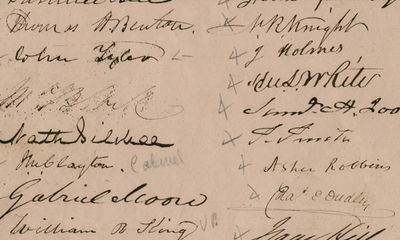 Thomas H Benton.
John Tyler
Nath Silsbee
Th. Clayton. Cabinet
Gabriel Moore
William R King VP
N. R Knight
J Holmes
Hu L White
Saml. A. Foo
Asher Robbins
Chas. E Dudley
Isaac Hill